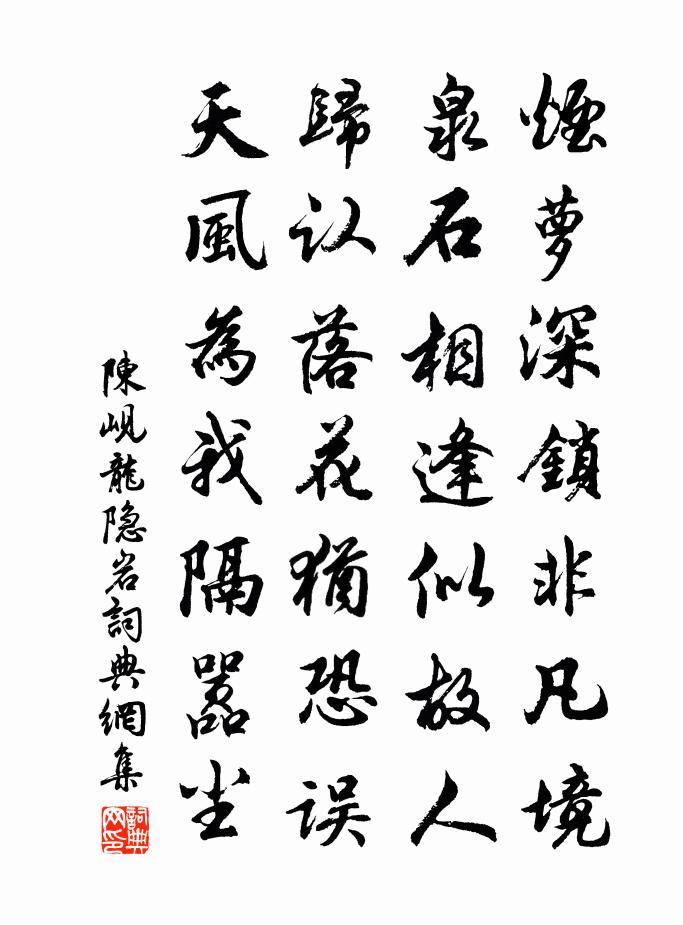 煙夢深鎖非凡境
泉石相逢似故人
歸认落花猶恐误
天風為我隔嚣尘
陳岘龍隐岩詞典網集
詞典网印